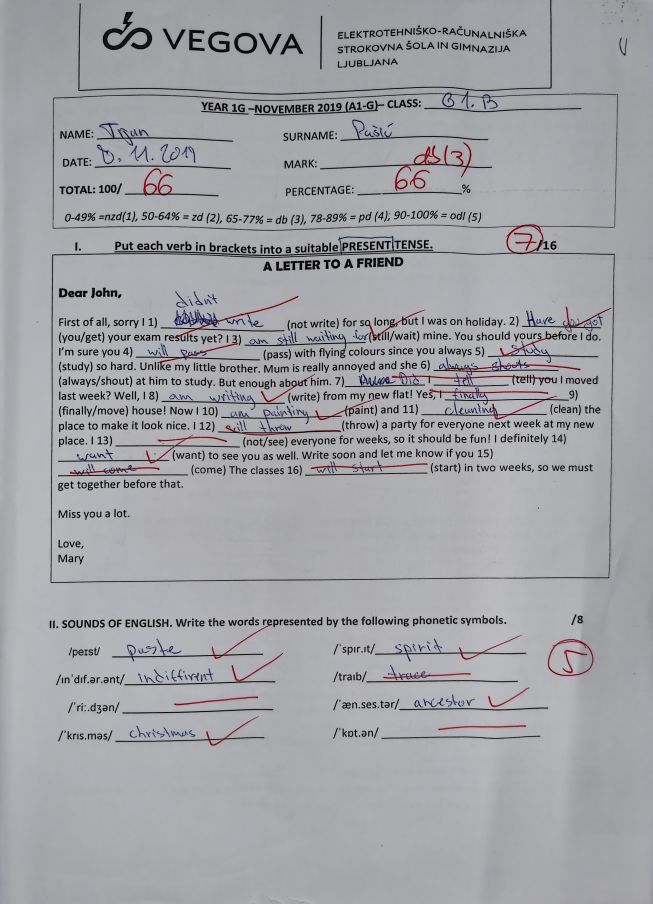 VEGOVA
ELEKTROTEHNIŠKO-RAČUNALNIŠKA
STROKOVNA ŠOLA IN GIMNAZIJA
LJUBLJANA
YEAR 1G –NOVEMBER 2019 (A1-G)– CLASS: G1.B
NAME: SURNAME: Pašić
DATE: 8.11.2019 MARK: db(3)
TOTAL: 100/ 66 PERCENTAGE: 66 %
0-49% =nzd(1), 50-64% = zd (2), 65-77% = db (3), 78-89% = pd (4); 90-100% = odl (5)
I. Put each verb in brackets into a suitable PRESENT TENSE. 7/16
A LETTER TO A FRIEND
Dear John,
didn't
First of all, sorry I 1) write (not write) for so long, but I was on holiday. 2) Have you got
(you/get) your exam results yet? I 3) am still waiting for (still/wait) mine. You should yours before I do.
I'm sure you 4) will pass (pass) with flying colours since you always 5) study
(study) so hard. Unlike my little brother. Mum is really annoyed and she 6) always shouts
(always/shout) at him to study. But enough about him. 7) Did I tell (tell) you I moved
last week? Well, I 8) am writing (write) from my new flat! Yes, I finally 9)
(finally/move) house! Now I 10) am painting (paint) and 11) cleaning (clean) the
place to make it look nice. I 12) will throw (throw) a party for everyone next week at my new
place. I 13) (not/see) everyone for weeks, so it should be fun! I definitely 14)
want (want) to see you as well. Write soon and let me know if you 15)
will come (come) The classes 16) will start (start) in two weeks, so we must
get together before that.
Miss you a lot.
Love,
Mary
II. SOUNDS OF ENGLISH. Write the words represented by the following phonetic symbols. /8
5
/peɪst/ paste /ˈspɪr.ɪt/ spirit
/ɪnˈdɪf.ər.ənt/ indiffirent /traɪb/ trace
/ˈriː.dʒən/ /ˈæn.ses.tər/ ancestor
/ˈkrɪs.məs/ christmas /ˈkɒt.ən/